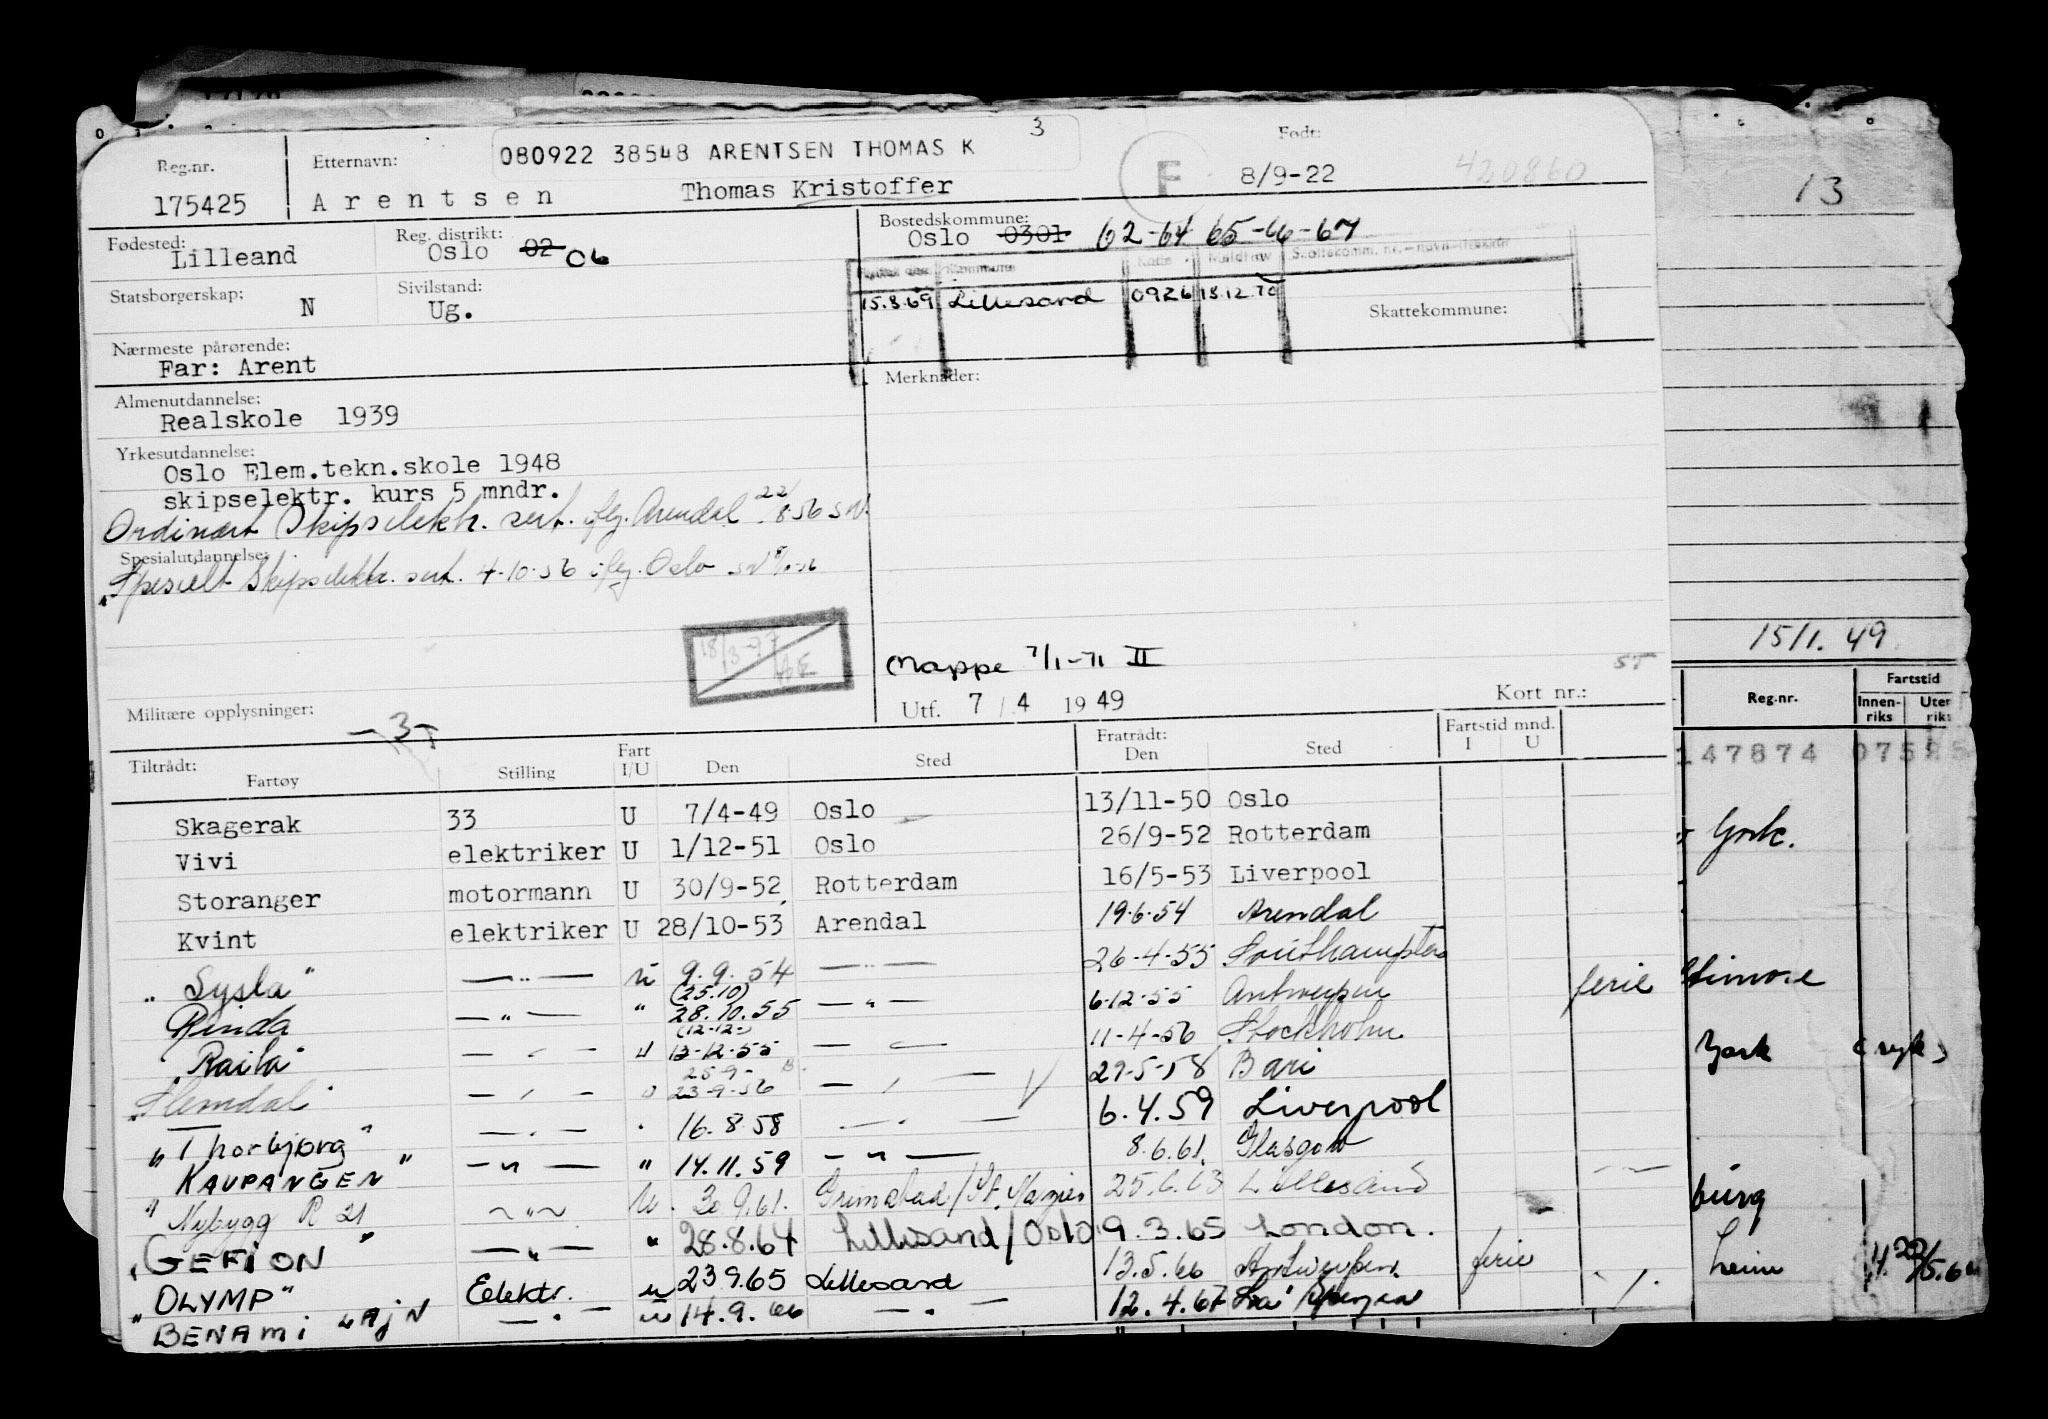 3
080922 38548 ARENTSEN THOMAS K
Reg.nr. Etternavn: Født:
175425 Arentsen Thomas Kristoffer F 8/9-22 420860
13
Fødested: Lilleand Reg. distrikt: Oslo 02 06
Bostedskommune: Oslo 0301 62-64 65-66-67
Statsborgerskap: N Sivilstand: Ug.
Kommune
15.8.69 Lillesand 0926 18.12.70
Skattekommune:
Nærmeste pårørende:
Far: Arent
Merknader:
Almenutdannelse:
Realskole 1939
Yrkesutdannelse:
Oslo Elem.tekn.skole 1948
skipselektr. kurs 5 mndr.
Ordinært Skipselektr. sert. iflg. Arendal 22/8 56
Spesialutdannelse:
Spesielt Skipselektr. sert. 4-10-56 iflg. Oslo
Mappe 7/1-71 II
ST
Militære opplysninger:
Utf. 7/4 1949 Kort nr.:
15/1.49
-3-
Tiltrådt: Fratrådt: Fartstid mnd.
Fartøy Stilling Fart I/U Den Sted Den Sted I U
Reg.nr. Fartstid Innenriks
147874
Skagerak 33 U 7/4-49 Oslo 13/11-50 Oslo
Vivi elektriker U 1/12-51 Oslo 26/9-52 Rotterdam
York.
Storanger motormann U 30/9-52 Rotterdam 16/5-53 Liverpool
Kvint elektriker U 28/10-53 Arendal 19.6.54 Arendal
" Sysla" — " — U 9.9.54 — " — 26-4-55 Southampton
Rinda — " — " (25.10) 28.10.55 — " — 6-12-55 Antwerpen ferie
" Raila" — " — " (12-12-) 13-12-55 — " — 11-4-56 Stockholm
York
Slemdal — " — " 25-9- 23-9-56 — " — 27-5-58 Bari
" Thorbjørg" — " — " 16.8.58 — " — 6.4.59 Liverpool
" KAUPANGEN" — " — " 14.11.59 — " — 8.6.61. Glasgow
" Nybygg R 21 — " — U 9.61. Grimstad/St. Nazaire 25.6.63 Lillesand
burg
" GEFION" — " — " 28.8.64 Lillesand/Oslo 9.3.65 London.
heim
" OLYMP" Elektr. U 23 9.65 Lillesand 13.5.66 Antwerpen ferie
" BENAMI — " — U 14.9.66 — " — 12.4.67